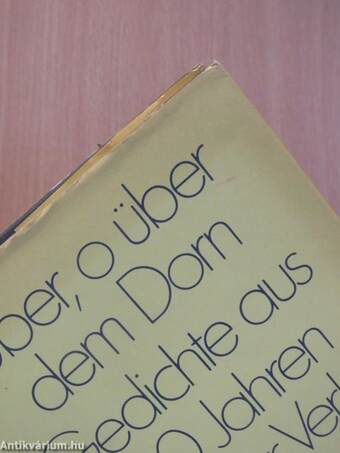 über, o über
dem Dorn
Gedichte aus
Jahren
Antikvárium.hu